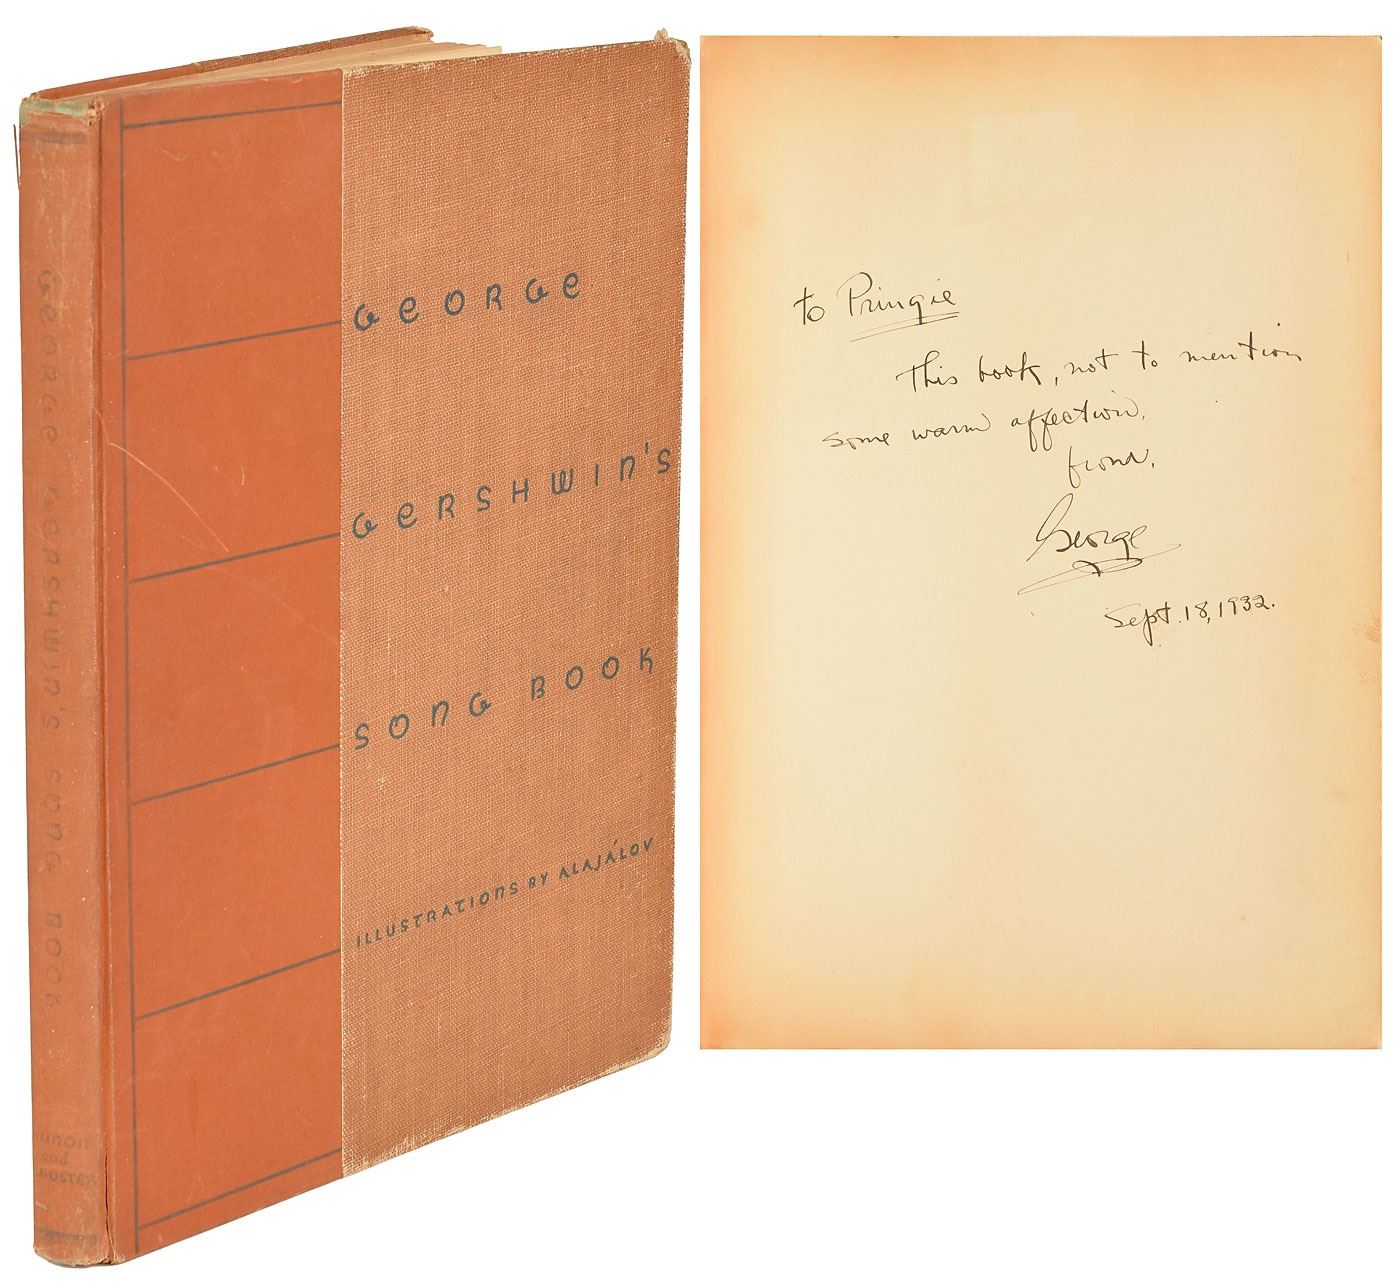 GEORGE GERSHWIN'S SONG BOOK
and
GEORGE
GERSHWIN'S
SONG BOOK
ILLUSTRATIONS BY ALAJÁLOV
to Pringie
This book, not to mention
some warm affection,
from,
George
Sept. 18, 1932.